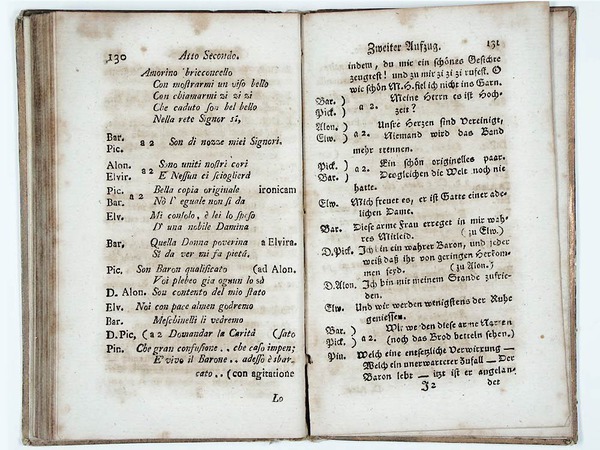 130 Atto Secondo.
Amorino bricconcello
Con mostrarmi un viso bello
Con chiamarmi zi zi zi
Che caduto son bel bello
Nella rete Signor sì,
Bar.
Pic. a 2 Son di nozze miei Signori.
Alon. Sono uniti nostri cori
Elvir. a 2 E Nessun ei scioglierà
Pic. Bella copia originale ironicam
Bar. a 2 Nò l' eguale non si da
Elv. Mi consolo, è lei lo sposo
D' una nobile Damina
Bar, Quella Donna poverina a Elvira.
Si da ver mi fa pietá.
Pic. Son Baron qualificato (ad Alon.
Voi plebeo gia ognun lo sà
D. Alon. Son contento del mio stato
Elv. Noi con pace almen godremo
Bar. Meschinelli li vedremo
D.Pic, (a 2 Domandar la Carità (sato
Pin. Che gran confusione.. che caso impen;
E' vivo il Barone.. adesso è sbar
cato.. (con agitatione
Lo
Zweiter Aufzug. 131
indem, du mir ein schönes Gesichte
zeugtest! und zu mir zi zi zi rufest. O
wie schön M.H. fiel ich nicht ins Garn.
Bar. ) Meine Herrn es ist Hoch-
Pick. ) a 2. zeit?
Alon. ) Unsre Herzen sind Vereinigt,
Elw. ) a 2. Niemand wird das Band
mehr trennen.
Pick. ) Ein schön originelles paar.
Bar. ) a 2. Desgleichen die Welt noch nie
hatte.
Elw. Mich freuet es, er ist Gatte einer ade-
lichen Dame.
Bar. Diese arme Frau erreget in mir wah-
res Mitleid. (zu Elw.)
D.Pick. Ich bin ein wahrer Baron, und jeder
weiß daß ihr von geringen Herkom-
men seyd. (zu Alon.)
D.Alon. Ich bin mit meinem Stande zufrie-
den.
Elw. Und wir werden wenigstens der Ruhe
geniessen.
Bar. ) Wir werden diese arme Narren
Pick. ) a 2. (noch das Brod betteln sehen.)
Pin. Welch eine entsetzliche Verwirrung —
Welch ein unerwarteter Zufall — Der
Baron lebt — itzt ist er angelan-
J 2 det